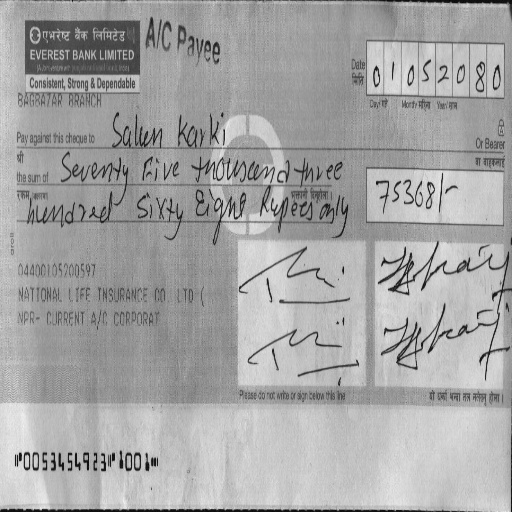 एभरेष्ट बैंक लिमिटेड
EVEREST BANK LIMITED
Consistent, Strong & Dependable
BAGBAZAR BRANCH
A/C Payee
Date 01052080
मिति
Day/गते Month/महिना Year/साल
Pay against this cheque to Salien Karki Or Bearer
श्री वा वाहकलाई
the sum of Seventy Five thousand three
रकम
hundred Sixty Eight Rupees only
75368/-
04400105200597
NATIONAL LIFE INSURANCE CO. LTD (
NPR- CURRENT A/C CORPORAT
Please do not write or sign below this line
⑈0053454923⑈ 1001⑈